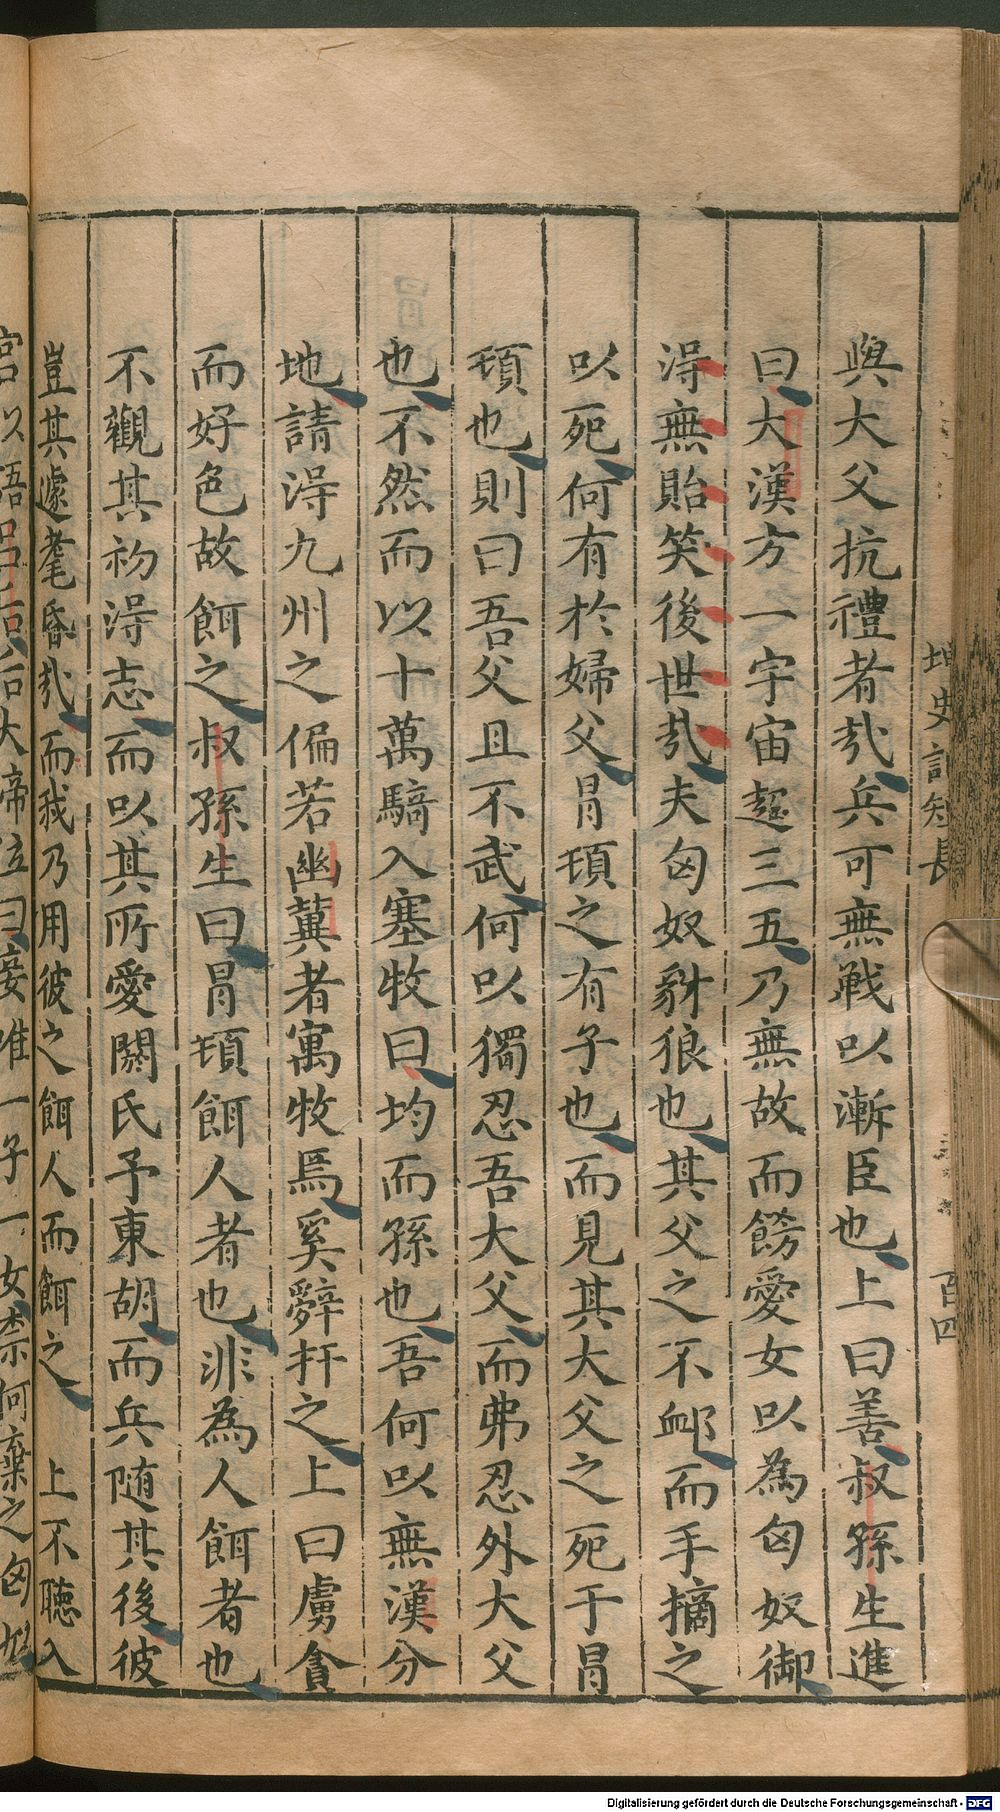 與大父抗禮者㢤兵可無戦以漸臣也上曰善叔孫生進
曰大漢方一宇宙超三五乃無故而餝愛女以為匈奴御
淂無貽笑後世㢤夫匈奴豺狼也其父之不卹而手摘之
以死何有於婦父冐頓之有子也而見其大父之死于冐
頓也則曰吾父且不武何以獨忍吾大父而弗忍外大父
也不然而以十萬騎入塞牧曰均而孫也吾何以無漢分
地請淂九州之偏若幽冀者寓牧焉奚辭扞之上曰虜貪
而好色故餌之叔孫生曰冐頓餌人者也非為人餌者也
不觀其初淂志而以其所愛閼氏予東胡而兵随其後彼
豈其遽耄昏㢤而我乃用彼之餌人而餌之上不聴入
宫以語吕后后大啼泣曰妾唯一子一女柰何棄之匈奴
史記短長
百四
Digitalisierung gefördert durch die Deutsche Forschungsgemeinschaft - DFG